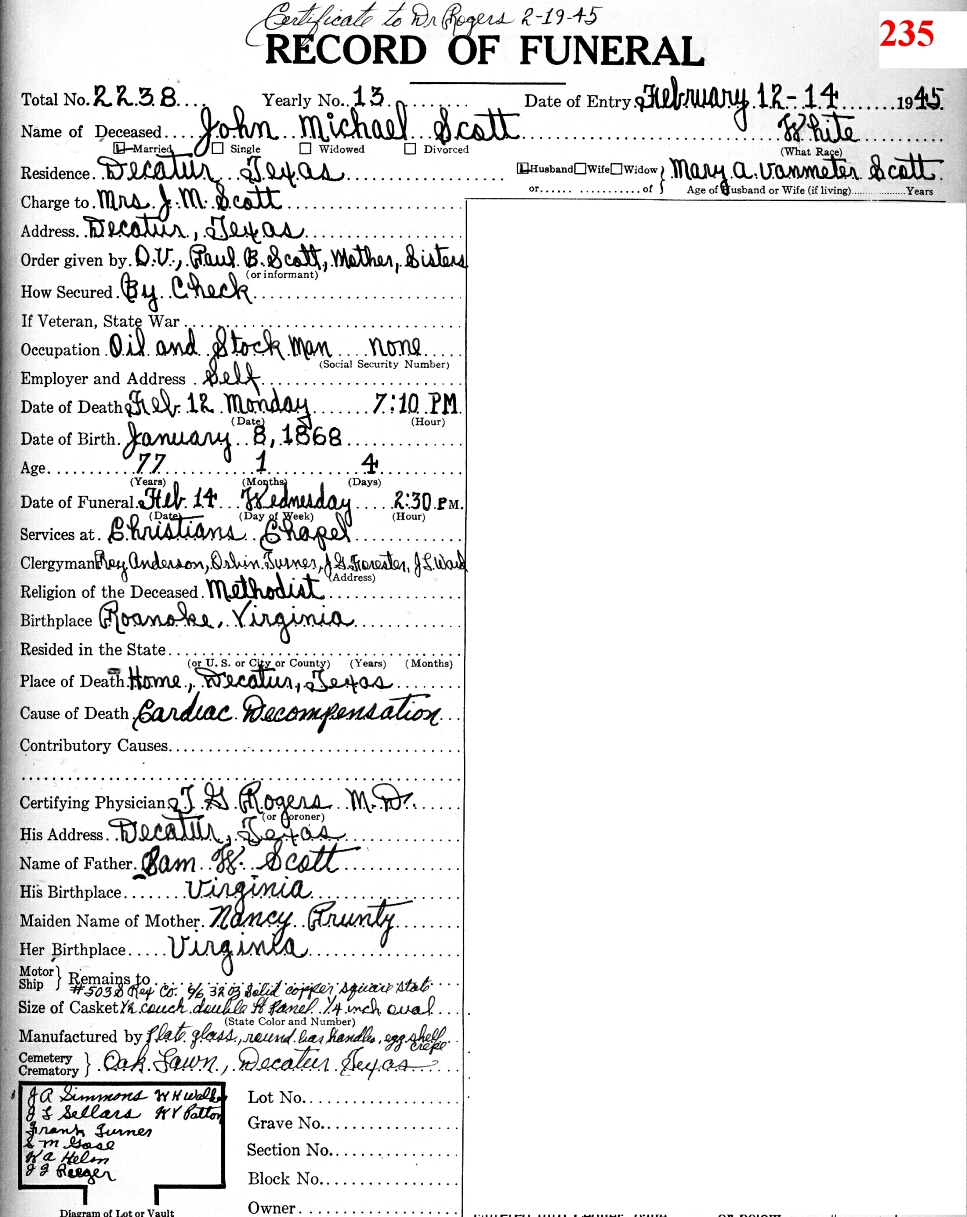 Certificate to Dr Rogers 2-19-45
235
RECORD OF FUNERAL
Total No. 2238 Yearly No. 13 Date of Entry February 12-14 1945
Name of Deceased John Michael Scott White
Married Single Widowed Divorced (What Race)
Residence Decatur Texas Husband Wife Widow Mary A. Vanmeter Scott
or of Age of Husband or Wife (if living) Years
Charge to Mrs. J. M. Scott
Address Decatur, Texas
Order given by O.V., Paul B. Scott, Mother, Sisters
(or informant)
How Secured By Check
If Veteran, State War
Occupation Oil and Stock Man none
(Social Security Number)
Employer and Address Self
Date of Death Feb. 12 Monday 7:10 PM
(Date) (Hour)
Date of Birth January 8, 1868
Age 77 1 4
(Years) (Months) (Days)
Date of Funeral Feb. 14 Wednesday 2:30 P.M.
(Date) (Day of Week) (Hour)
Services at Christians Chapel
Clergyman Roy Anderson, Turner, J G Forester, J L Ward
(Address)
Religion of the Deceased Methodist
Birthplace Roanoke, Virginia
Resided in the State
(or U. S. or City or County) (Years) (Months)
Place of Death Home, Decatur, Texas
Cause of Death Cardiac Decompensation
Contributory Causes
Certifying Physician T G Rogers M.D.
(or Coroner)
His Address Decatur, Texas
Name of Father Sam W. Scott
His Birthplace Virginia
Maiden Name of Mother Nancy Prunty
Her Birthplace Virginia
Motor Ship } Remains to
#503 S Rex Co. 6/6 3203 Solid copper square state
Size of Casket 1/2 couch double panel 1/4 inch oval
(State Color and Number)
Manufactured by flat glass, round bar handles, egg shell crepe
Cemetery Crematory } Oak Lawn, Decatur Texas
J A Simmons W H Walker
J L Sellars W V Patton
Frank Turner
S M Gose
W A Helm
J J Reeger
Lot No.
Grave No.
Section No.
Block No.
Owner
Diagram of Lot or Vault